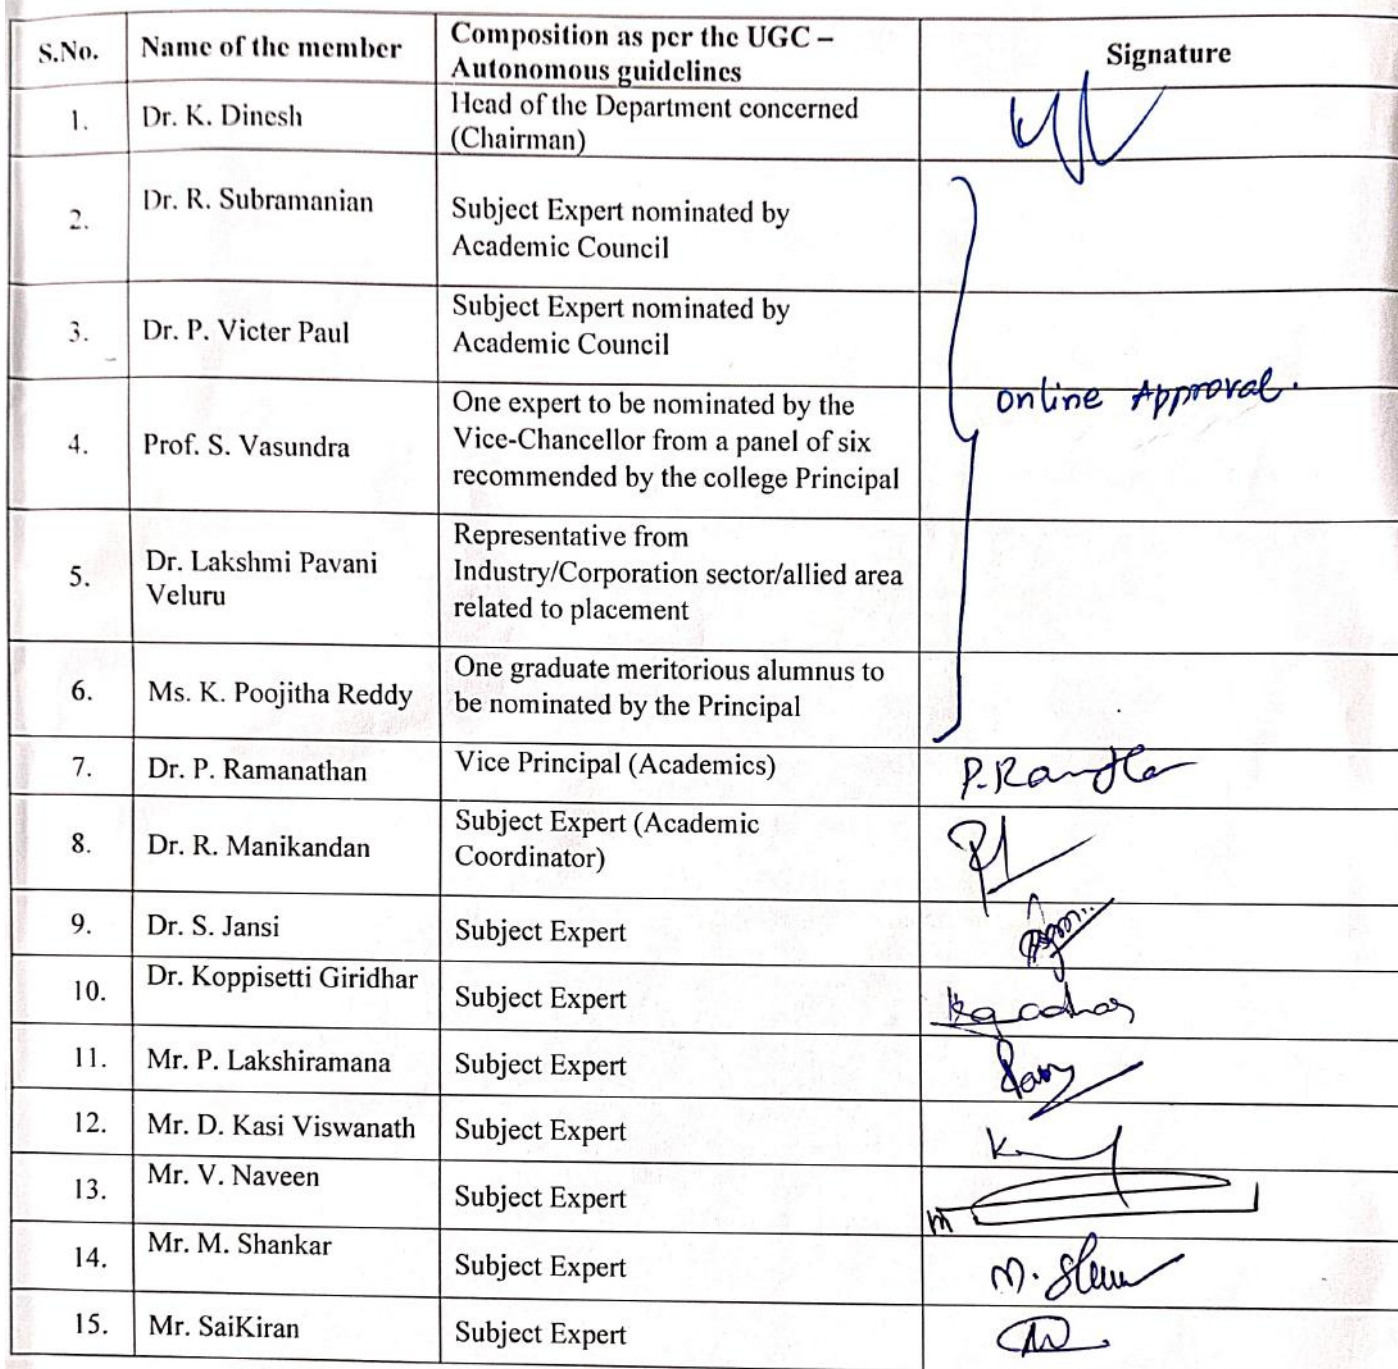 S.No. Name of the member Composition as per the UGC –
Autonomous guidelines Signature
1. Dr. K. Dinesh Head of the Department concerned
(Chairman)
2. Dr. R. Subramanian Subject Expert nominated by
Academic Council
3. Dr. P. Victer Paul Subject Expert nominated by
Academic Council
online Approval.
4. Prof. S. Vasundra One expert to be nominated by the
Vice-Chancellor from a panel of six
recommended by the college Principal
5. Dr. Lakshmi Pavani
Veluru Representative from
Industry/Corporation sector/allied area
related to placement
6. Ms. K. Poojitha Reddy One graduate meritorious alumnus to
be nominated by the Principal
7. Dr. P. Ramanathan Vice Principal (Academics)
8. Dr. R. Manikandan Subject Expert (Academic
Coordinator)
9. Dr. S. Jansi Subject Expert
10. Dr. Koppisetti Giridhar Subject Expert
11. Mr. P. Lakshiramana Subject Expert
12. Mr. D. Kasi Viswanath Subject Expert
13. Mr. V. Naveen Subject Expert
14. Mr. M. Shankar Subject Expert
15. Mr. SaiKiran Subject Expert